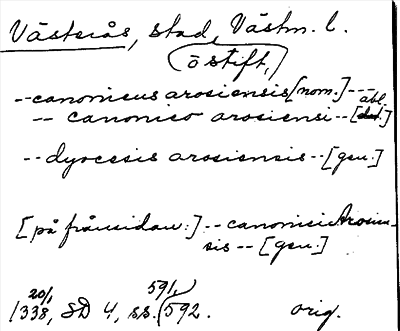 Västerås, stad, Västm. l.
(ö stift,)
--canonicus arosiensis [nom.]--
-- canonico arosiensi -- [abl.]
--dyocesis arosiensis -- [gen.]
[på frånsidan:] --canonici Arosien-
sis -- [gen.]
20/1 1338, SD 4, ss. 591, 592. orig.